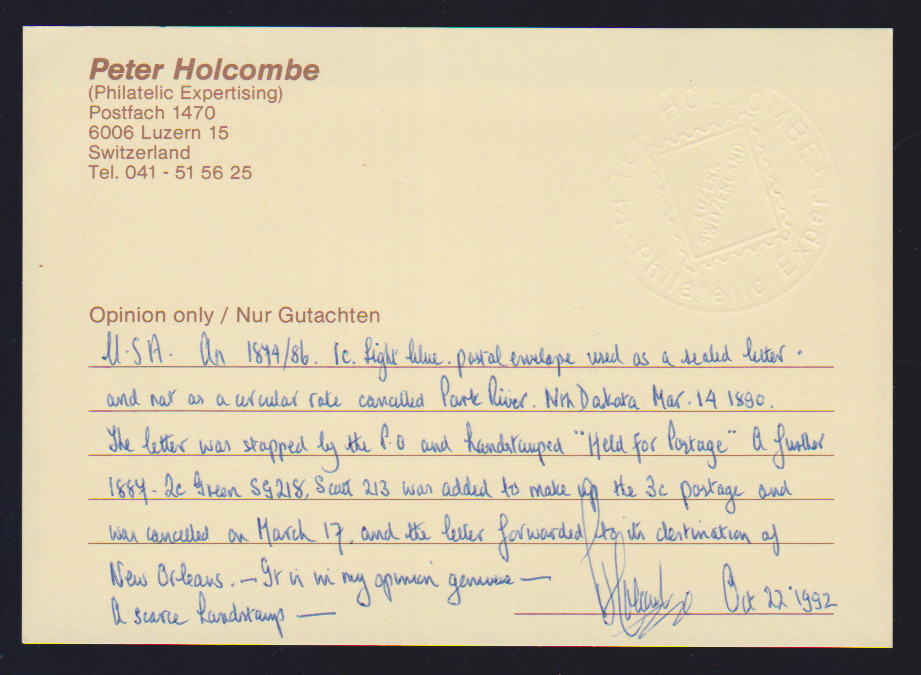 Peter Holcombe
(Philatelic Expertising)
Postfach 1470
6006 Luzern 15
Switzerland
Tel. 041 - 51 56 25
HOLCOMBE
LUZERN
SWITZERLAND
Philatelic Expert
Opinion only / Nur Gutachten
U.S.A. An 1874/86. 1c. light blue. postal envelope used as a sealed letter.
and not as a circular rate cancelled Park River. Nth Dakota Mar. 14 1890.
The letter was stopped by the P.O and handstamped "Held for Postage" A further
1887 - 2c Green SG218, Scott 213 was added to make up the 3c postage and
was cancelled on March 17. and the letter forwarded to its destination of
New Orleans. — It is in my opinion genuine —
A scarce handstamp —
Oct 22 1992